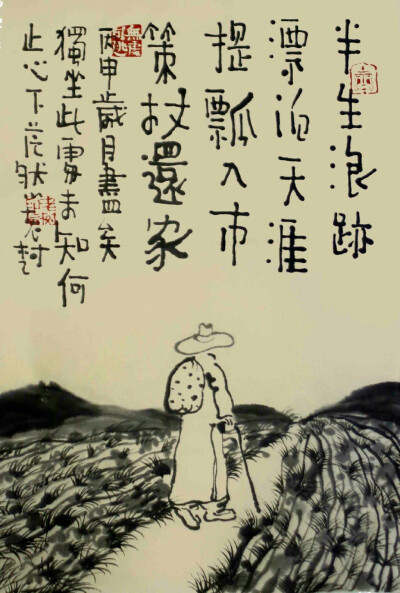 半生浪跡
漂泊天涯
提瓢入市
策杖還家
無處可逃
丙申歲月盡矣
獨坐此處未知何
止心下茫然